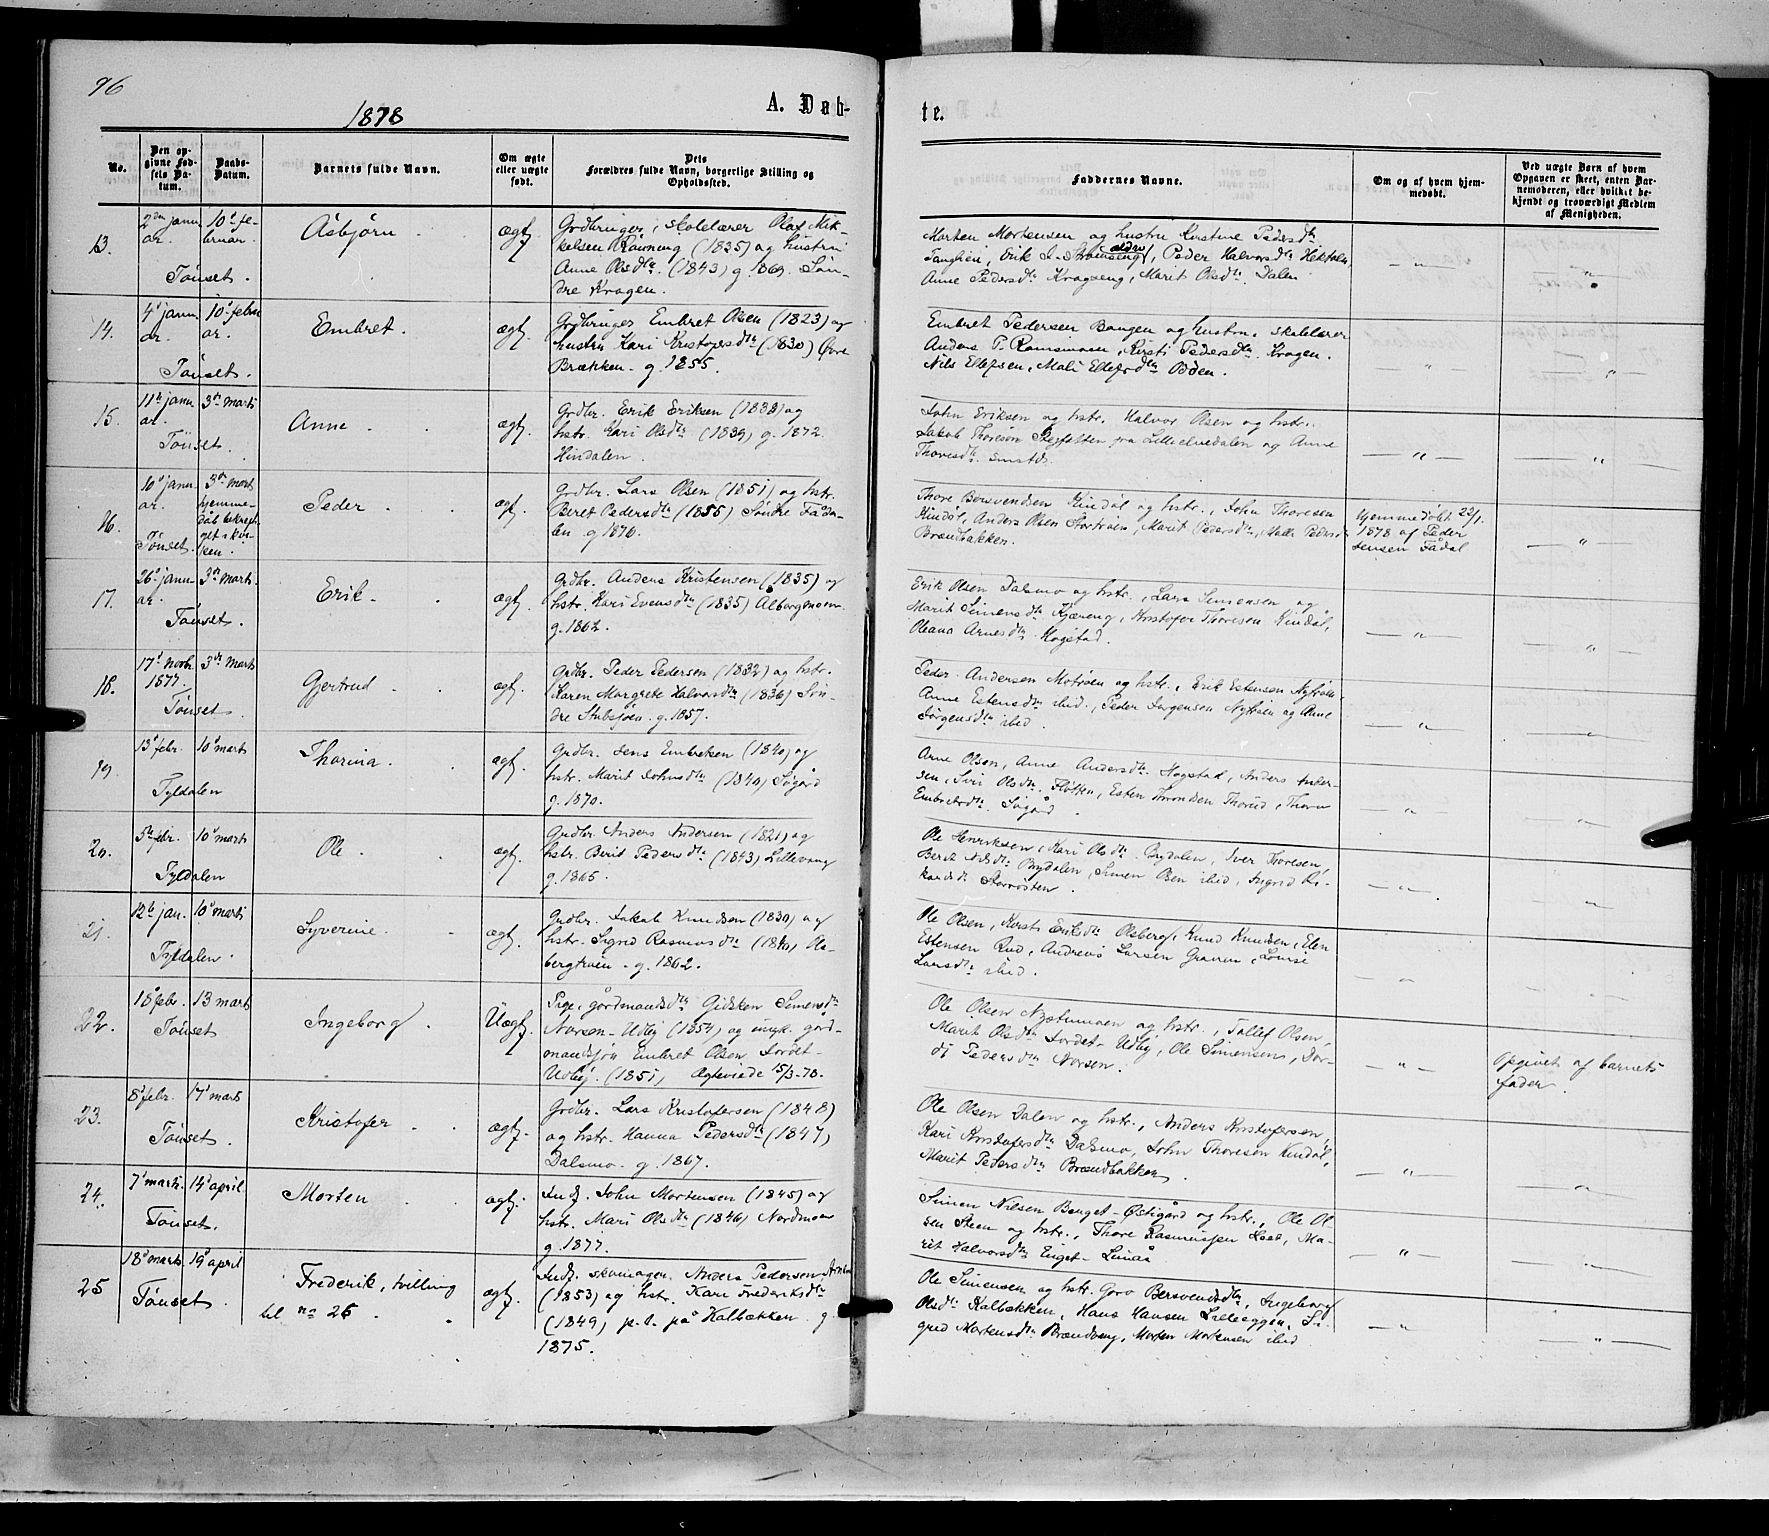 96
1878
A. Døb-
te.
No.
Den op-
givne Fød-
sels Da-
tum.
Daabs-
Datum.
Barnets fulde Navn.
Om ægte
eller uægte
født.
Dets
Forældres fulde Navn, borgerlige Stilling og
Opholdssted.
Faddernes Navne.
Om og af hvem hjem-
medøbt.
Ved uægte Børn af hvem
Opgaven er skeet, enten Bar-
nemoderen, eller hvilket be-
kjendt og troværdigt Medlem
af Menigheden.
13.
2den janu-
ar.
Tönset.
10d fe-
bruar.
Asbjörn
ægt.
Grdbruger, skolelærer Olaf Mik-
kelsen Rövning (1835) og hustru
Anne Olsdtr (1843) g 1869. Søn-
dre Kragen.
Morten Mortensen og hustru Kirstine Pedersdtr
Peder Halvorsdtr
Anne Pedersdtr Kragseng, Marit Olsdtr Dalen
14.
4d janu-
ar.
Tönset.
10d febru
ar.
Embret.
ægt.
Grdbruger Embret Olsen (1823) og
hustru Kari Kristofersdtr (1830) Övre
Brækken. g. 1855.
Embret Pedersen Bangen og hustru, skolelærer
Anders P. Ramsmoen, Kirsti Pedersdtr Kragen.
Nils Ellefsen, Mali Ellefsdtr Böen.
15.
11te janu-
ar.
Tönset.
3die marts
Anne
ægt.
Grdbr. Erik Eriksen (1838) og
hstr. Kari Olsdtr (1839) g. 1872.
Hindalen.
John Eriksen og hstr. Halvor Olsen og hstr.
Jakob Thoresen fra Lilleelvedalen og Anne
Thoresdtr smstds.
16.
10d janu-
ar.
Tönset.
3die marts
hjemme-
dåb bekræf-
tet i kir-
ken.
Peder
ægt.
Grdbr. Lars Olsen (1851) og hstr.
Beret Pedersdtr (1855) Söndre Fåda-
len g 1876.
Thore Bersvendsen Kindöl og hstr., John Thoresen
Kindöl, Anders Olsen Stortröen, Marit Pedersdtr, Malli Pedersdtr
Brændbakken.
hjemmedöbt 22/1.
1878 af Peder
Jensen Fådal
17.
26d janu-
ar.
Tönset.
3die marts
Erik
ægt.
Grdbr. Anders Kristensen (1835) og
hstr. Kari Evensdtr (1835) Alborgmoen
g. 1862.
Erik Olsen Dalsmo og hstr., Lars Simensen og
Marit Simensdtr Kjæreng, Kristofer Thoresen Kindöl,
Oleana Arnesdtr Mogstad.
18.
17d novbr.
1877.
Tönset.
3die marts
Gjertrud
ægt.
Grdbr. Peder Pedersen (1832) og hstr.
Karen Margrete Halvorsdtr (1836) Sön-
dre Stubsjöen. g. 1857.
Peder Andersen Motröen og hstr., Erik Estensen Nytröen
Anne Estensdtr ibid., Peder Jörgensen Nytröen og Anne
Jörgensdtr ibid.
19.
13d febr.
Tyldalen
10d marts
Thorina
ægt.
Grdbr. Jens Embretsen (1840) og
hstr. Marit Johnsdtr (1840) Sögård
g. 1870.
Arne Olsen, Anne Andersdtr Hogstad, Anders Ander-
sen, Siri Olsdtr Fløtten, Esten Throndsen Thorud, Thora
Embretsdtr Sögård.
20.
5te febr.
Tyldalen
10d marts
Ole
ægt.
Grdbr. Anders Andersen (1821) og
hstr. Berit Pedersdtr (1843) Lillevang
g. 1865.
Ole Henriksen, Kari Olsdtr Brydalen, Iver Thoresen,
Beret Nilsdtr Brydalen, Simen Olsen ibid, Ingrid Ri-
kardsdtr Storrösten.
21.
12te jan.
Tyldalen.
10d marts
Syverine
ægt.
Grdbr. Jakob Knudsen (1830) og
hstr. Sigrid Rasmusdtr (1840) Ols-
bergtröen. g. 1862.
Ole Olsen, Kersti Eriksdtr Olsberg, Knud Knudsen, Elen
Estensen Rud, Andreas Larsen Gravem, Lovise
Larsdtr ibid.
22.
18d febr.
Tönset
13 marts
Ingeborg
Uægt.
Pige, gårdmandsdtr Gidsken Simensdtr
Narsen-Udby (1854) og ungk. gård-
mandssön Embret Olsen Jordet-
Udby. (1851) Ægteviede 15/3-78.
Ole Olsen Nystumoen og hstr., Tollef Olsen,
Marit Olsdtr Jordet-Udby, Ole Simensen, Dor-
di Pedersdtr Narsen.
Opgivet af barnets
fader.
23.
8d febr.
Tönset.
17d marts
Kristofer
ægt.
Grdbr. Lars Kristofersen (1848)
og hstr. Hanna Pedersdtr (1847)
Dalsmo. g. 1867.
Ole Olsen Dalen og hstr., Anders Kristofersen,
Kari Kristofersdtr Dalsmo, John Thoresen Kindöl,
Marit Pedersdtr Brændbakken.
24.
7d marts.
Tönset.
14d april
Morten
ægt.
Indf. John Mortensen (1845) og
hstr. Mari Olsdtr (1846) Nordmoen
g. 1877.
Simen Nilsen Bauget-Östigård og hstr., Ole Ol-
sen Steen og hstr., Thore Rasmussen Eset, Ma-
rit Halvorsdtr Enget-Lunås
25
18d marts
Tönset.
19d april
Frederik, tvilling
til no 26
ægt.
Indf. skomager Anders Pedersen
(1853) og hstr. Kari Frederiksdtr
(1849) p.t. på Kalbækken g.
1875.
Ole Simensen og hstr. Goro Bersvendsdtr, Ingeborg
Olsdtr Kalbækken, Hans Hansen Lilleeggen, Si-
grid Mortensdtr Brændvang, Morten Mortensen ibid